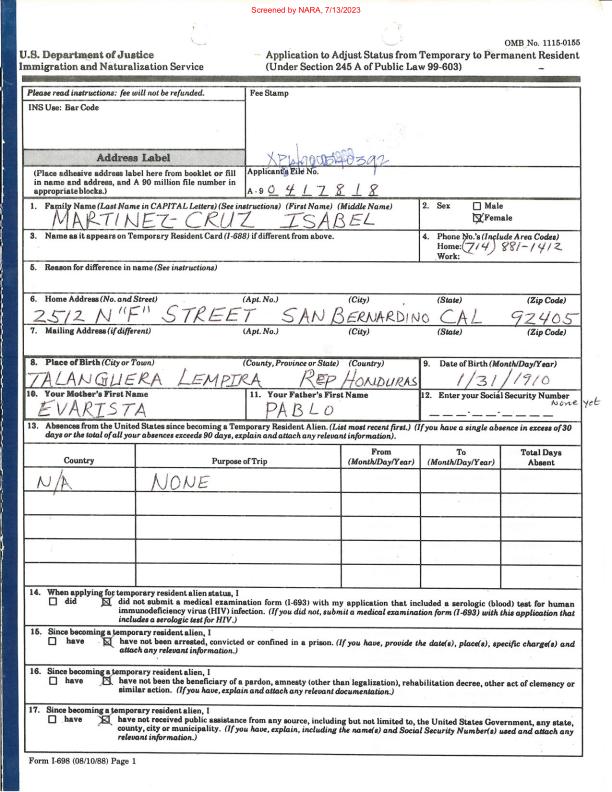 Screened by NARA, 7/13/2023
OMB No. 1115-0155
U.S. Department of Justice
Immigration and Naturalization Service
Application to Adjust Status from Temporary to Permanent Resident
(Under Section 245 A of Public Law 99-603)
Please read instructions: fee will not be refunded.
Fee Stamp
INS Use: Bar Code
Address Label
(Place adhesive address label here from booklet or fill
in name and address, and A 90 million file number in
appropriate blocks.)
Applicant's File No.
A - 9 0 4 1 7 8 1 8
1. Family Name (Last Name in CAPITAL Letters) (See instructions) (First Name) (Middle Name)
MARTINEZ-CRUZ ISABEL
2. Sex
Male
Female
3. Name as it appears on Temporary Resident Card (I-688) if different from above.
4. Phone No.'s (Include Area Codes)
Home: (714) 881-1412
Work:
5. Reason for difference in name (See instructions)
6. Home Address (No. and Street) (Apt. No.) (City) (State) (Zip Code)
2512 N "F" STREET SAN BERNARDINO CAL 92405
7. Mailing Address (if different) (Apt. No.) (City) (State) (Zip Code)
8. Place of Birth (City or Town) (County, Province or State) (Country)
TALANGUERA LEMPIRA REP HONDURAS
9. Date of Birth (Month/Day/Year)
1/31/1910
10. Your Mother's First Name
EVARISTA
11. Your Father's First Name
PABLO
12. Enter your Social Security Number
None yet
13. Absences from the United States since becoming a Temporary Resident Alien. (List most recent first.) (If you have a single absence in excess of 30
days or the total of all your absences exceeds 90 days, explain and attach any relevant information).
Country
Purpose of Trip
From
(Month/Day/Year)
To
(Month/Day/Year)
Total Days
Absent
N/A NONE
14. When applying for temporary resident alien status, I
did
did not submit a medical examination form (I-693) with my application that included a serologic (blood) test for human
immunodeficiency virus (HIV) infection. (If you did not, submit a medical examination form (I-693) with this application that
includes a serologic test for HIV.)
15. Since becoming a temporary resident alien, I
have
have not been arrested, convicted or confined in a prison. (If you have, provide the date(s), place(s), specific charge(s) and
attach any relevant information.)
16. Since becoming a temporary resident alien, I
have
have not been the beneficiary of a pardon, amnesty (other than legalization), rehabilitation decree, other act of clemency or
similar action. (If you have, explain and attach any relevant documentation.)
17. Since becoming a temporary resident alien, I
have
have not received public assistance from any source, including but not limited to, the United States Government, any state,
county, city or municipality. (If you have, explain, including the name(s) and Social Security Number(s) used and attach any
relevant information.)
Form I-698 (08/10/88) Page 1